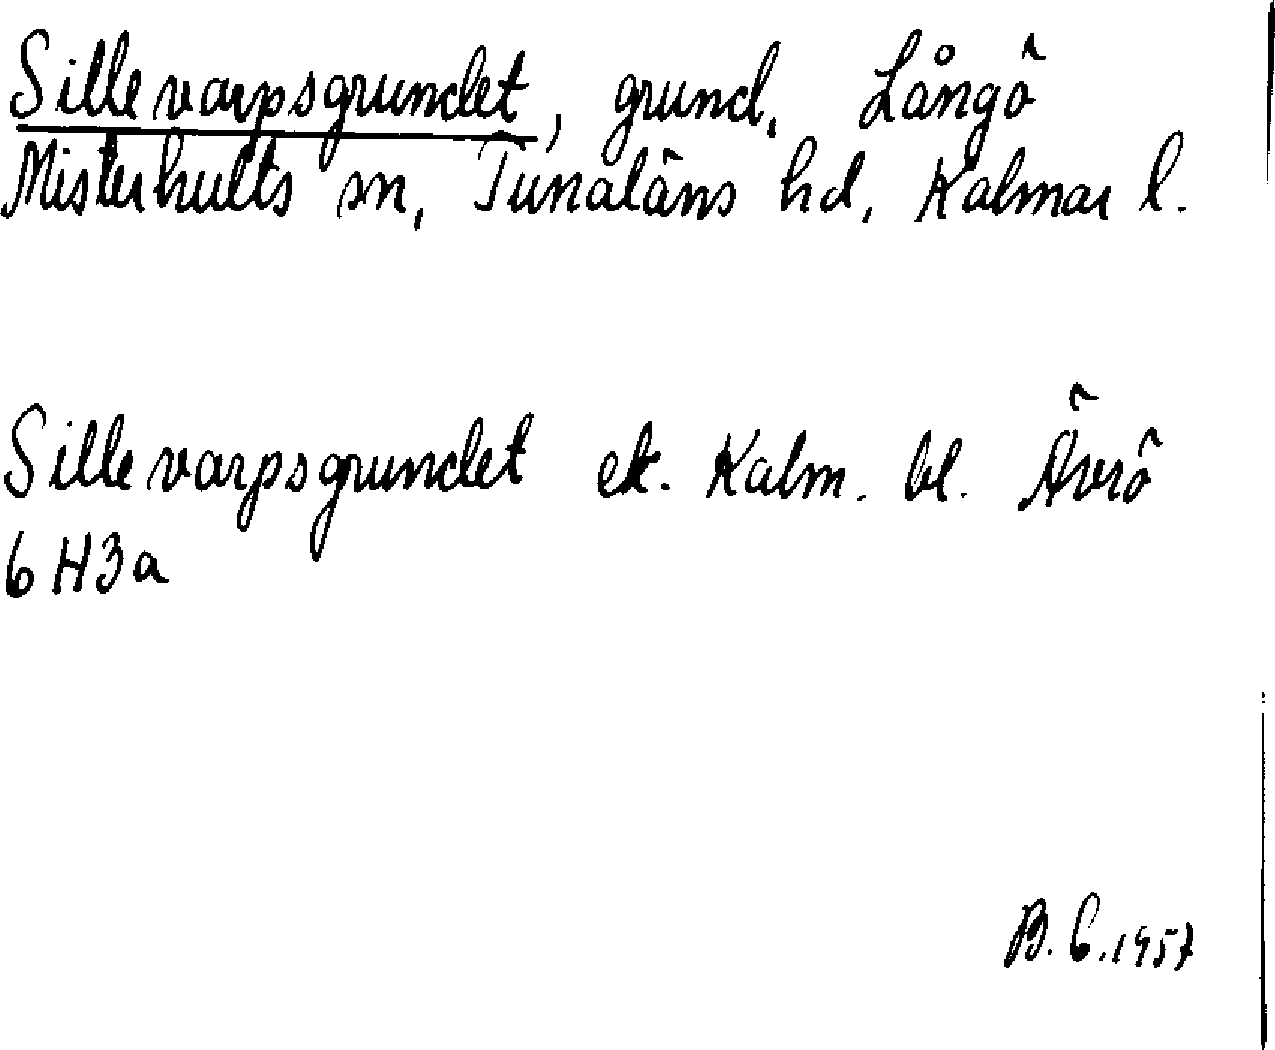 Sillevarpsgrundet, grund, Långö
Misterhults sn, Tunaläns hd, Kalmar l.
Sillevarpsgrundet ek. Kalm. bl. Ävrö
6 H3a
B. C. 1957